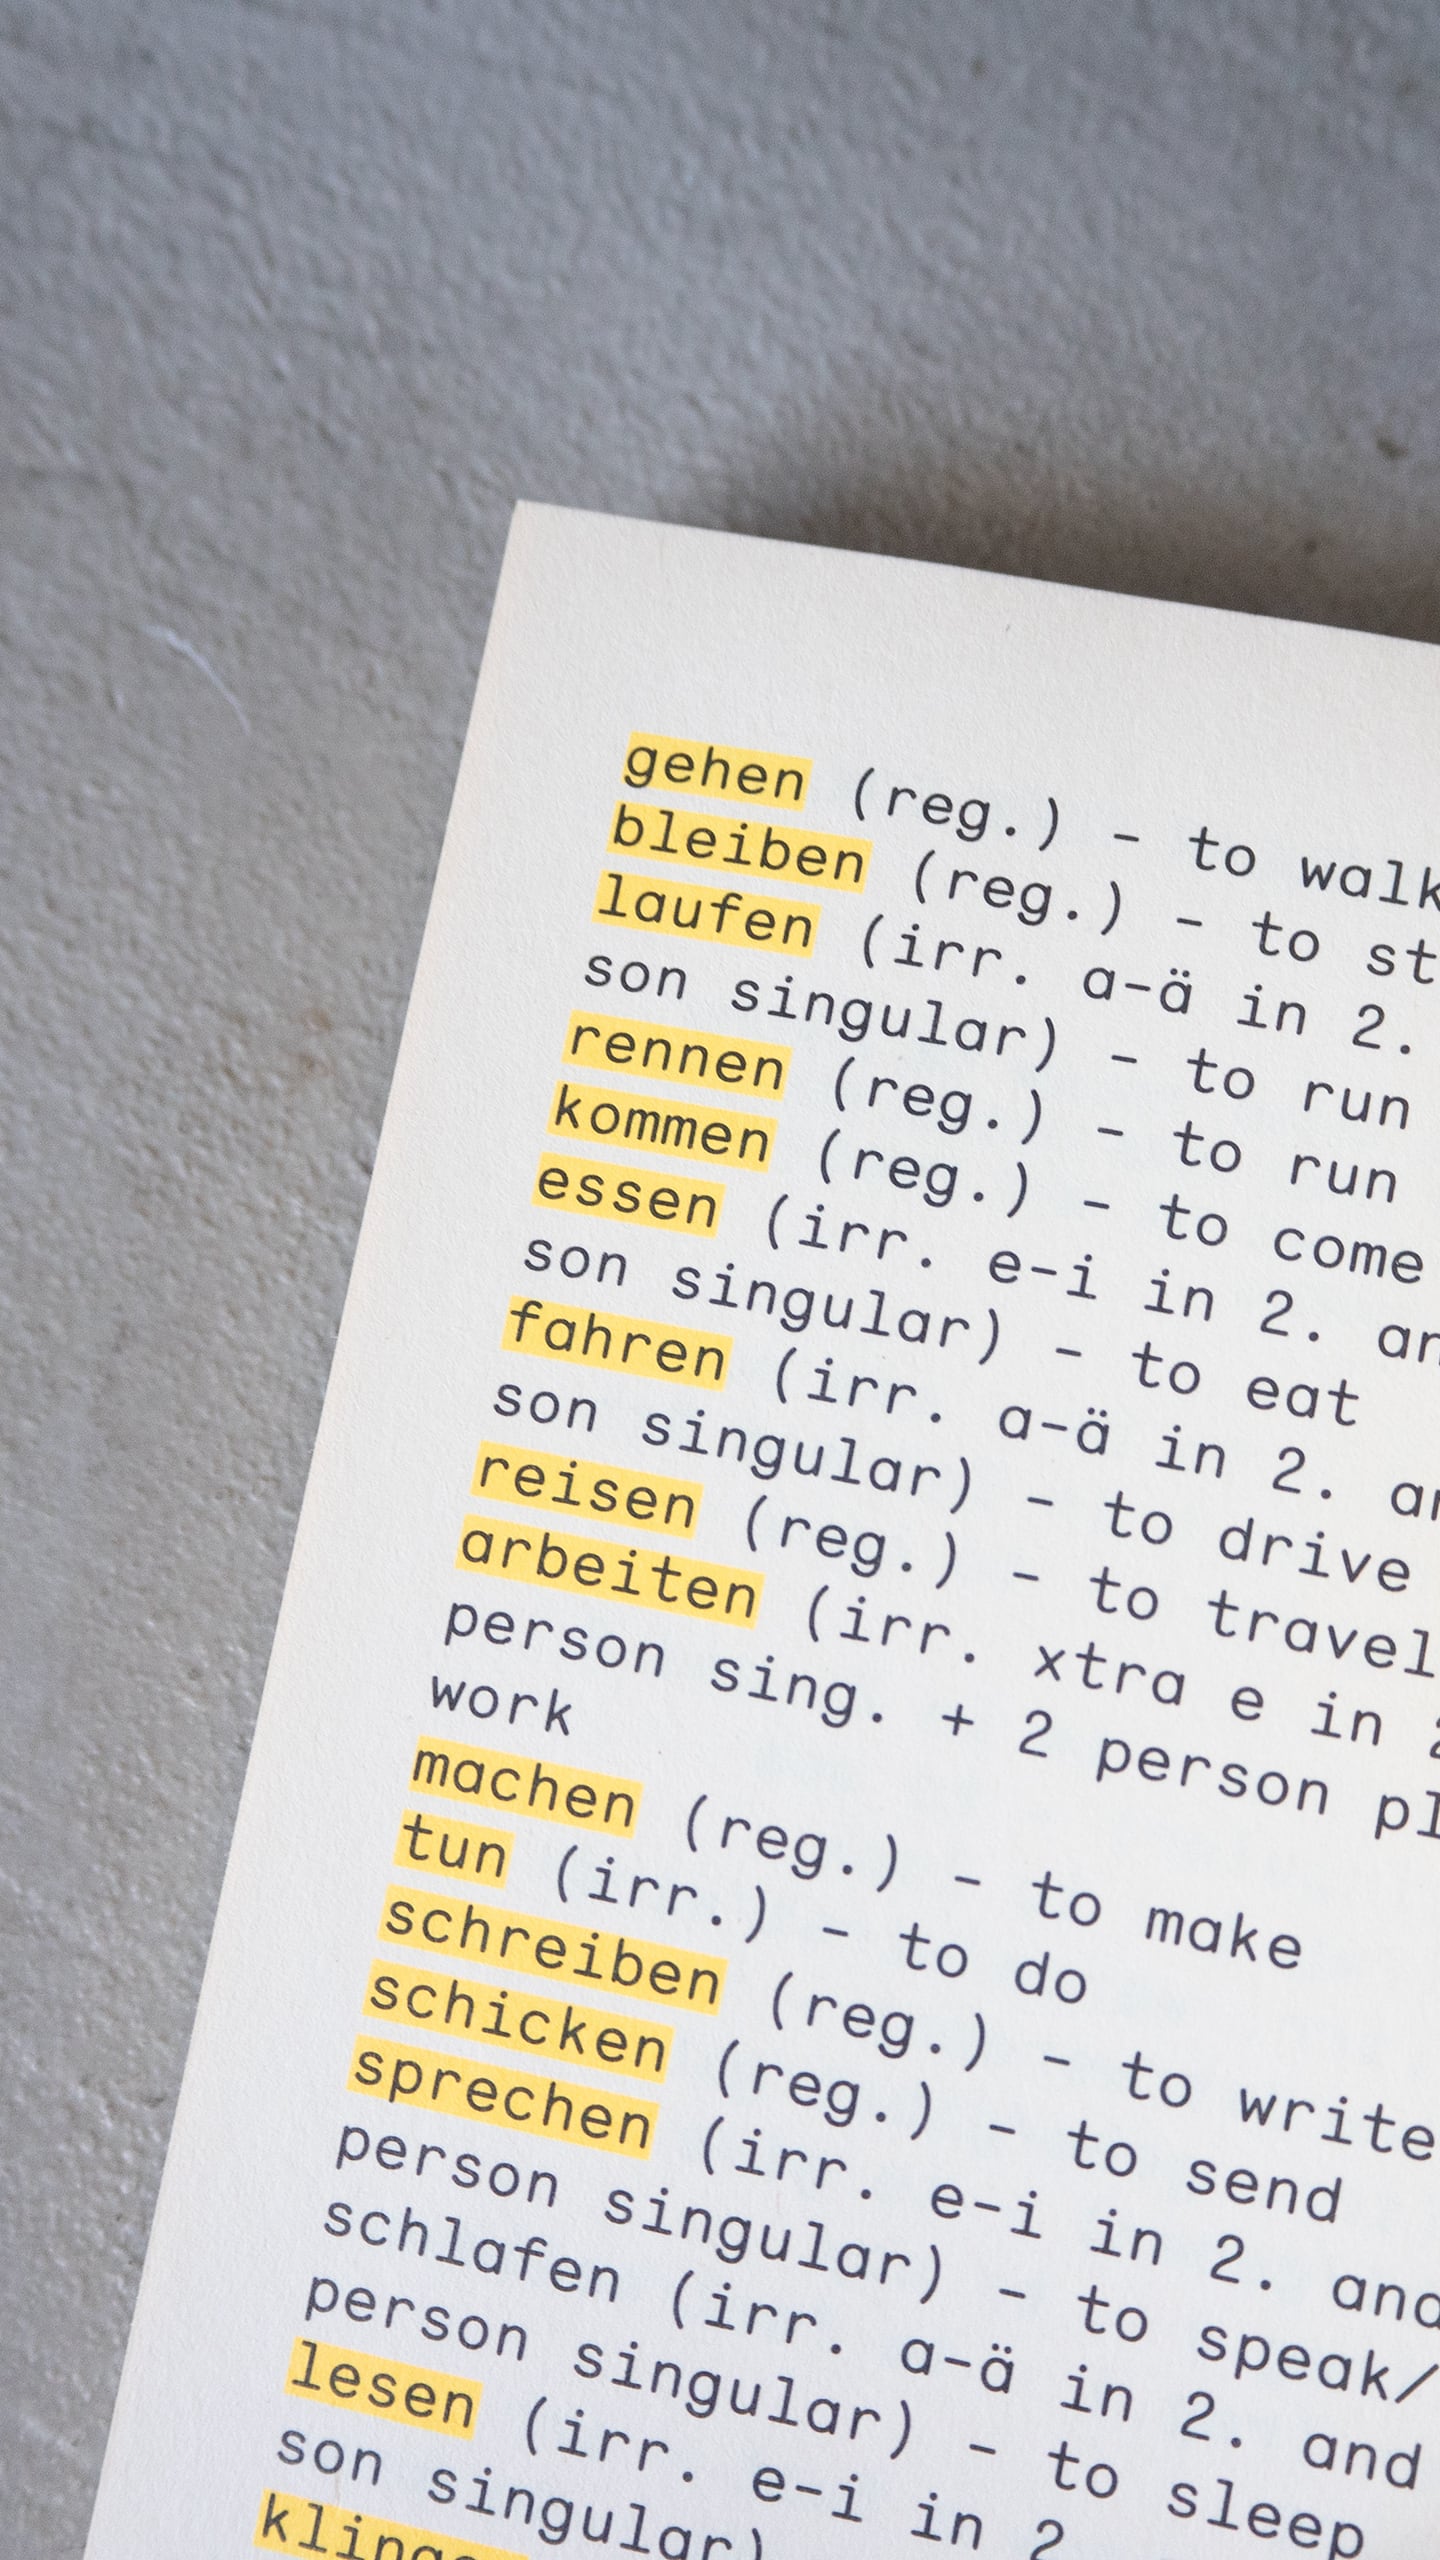 gehen (reg.) - to walk
bleiben (reg.) - to
laufen (irr. a-ä in 2.
son singular) - to run
rennen (reg.) - to run
kommen (reg.) - to come
essen (irr. e-i in 2.
son singular) - to eat
fahren (irr. a-ä in 2.
son singular) - to drive
reisen (reg.) - to travel
arbeiten (irr. xtra e in
person sing. + 2 person
work
machen (reg.) - to make
tun (irr.) - to do
schreiben (reg.) - to write
schicken (reg.) - to send
sprechen (irr. e-i in 2. and
person singular) - to speak/
schlafen (irr. a-ä in 2. and
person singular) - to sleep
lesen (irr. e-i in 2
son singular)